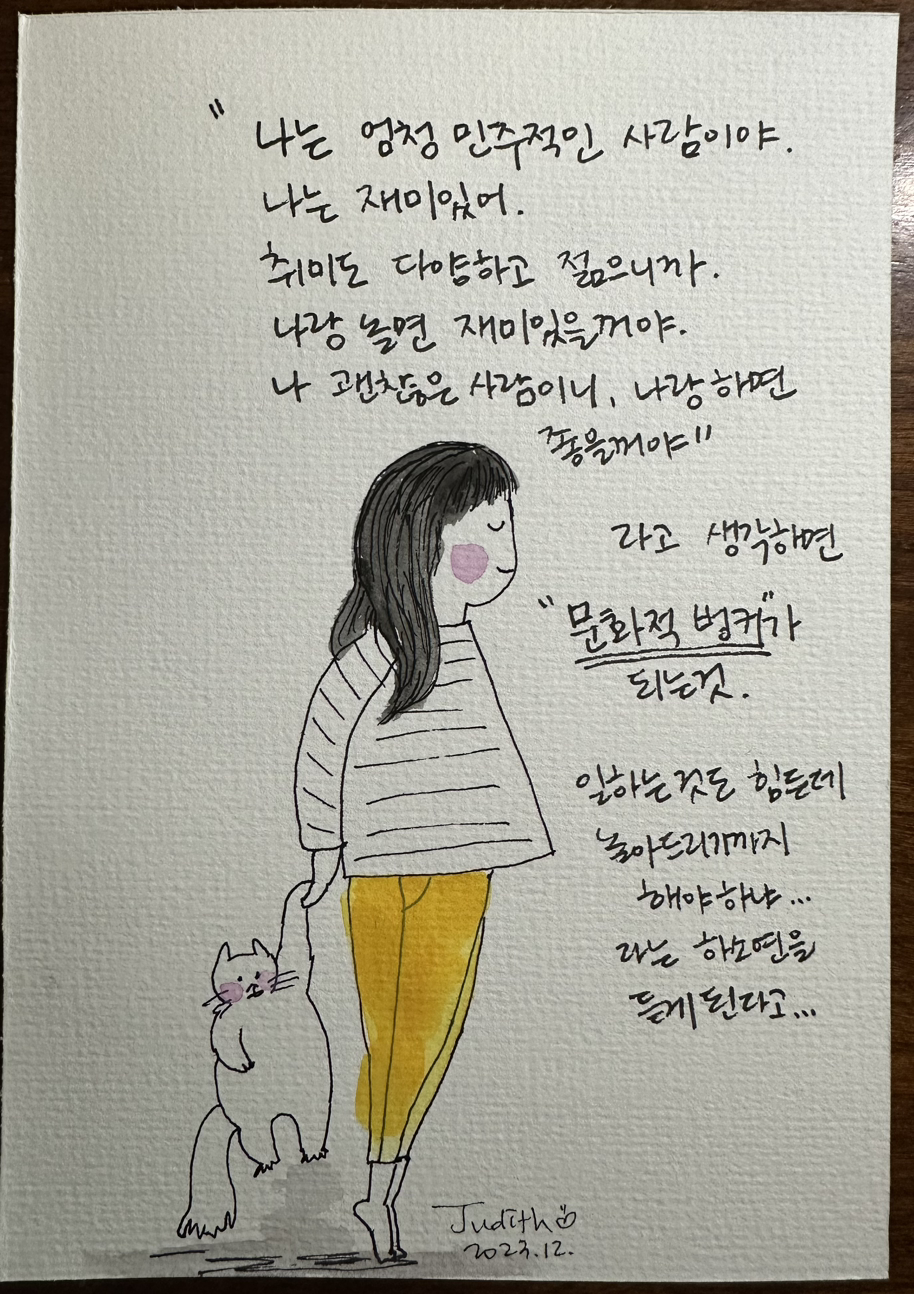 "나는 엄청 민주적인 사람이야.
나는 재미있어.
취미도 다양하고 젊으니까.
나랑 놀면 재미있을꺼야.
나 괜찮은 사람이니, 나랑하면
좋을꺼야"
라고 생각하면
"문화적 벙커"가
되는것.
일하는것도 힘든데
놀아드리기까지
해야하냐...
라는 하소연을
듣게된다고...
Judith
2023.12.